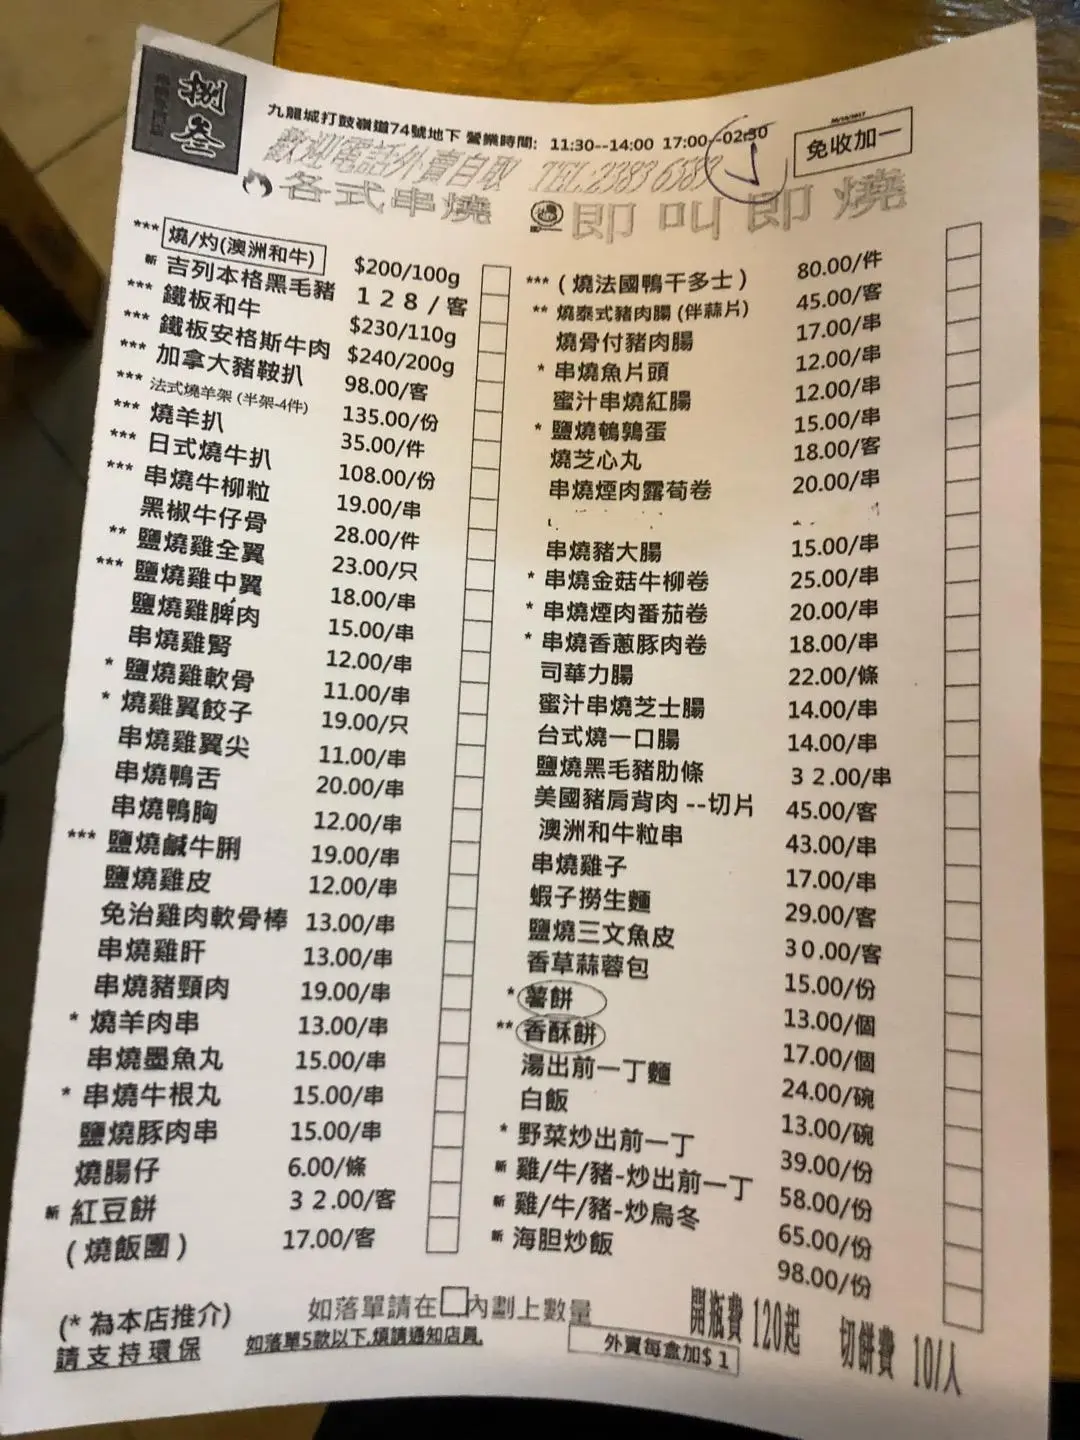 捌叁
九龍城打鼓嶺道74號地下 營業時間: 11:30--14:00 17:00--02:30
免收加一
歡迎電話外賣自取 TEL 2383 6383
各式串燒 即叫即燒
*** 燒/灼(澳洲和牛) $200/100g
新 吉列本格黑毛豬 128/客
*** 鐵板和牛 $230/110g
*** 鐵板安格斯牛肉 $240/200g
*** 加拿大豬鞍扒 98.00/客
*** 法式燒羊架 (半架-4件) 135.00/份
*** 燒羊扒 35.00/件
*** 日式燒牛扒 108.00/份
*** 串燒牛柳粒 19.00/串
黑椒牛仔骨 28.00/件
** 鹽燒雞全翼 23.00/只
*** 鹽燒雞中翼 18.00/串
鹽燒雞脾肉 15.00/串
串燒雞腎 12.00/串
* 鹽燒雞軟骨 11.00/串
* 燒雞翼餃子 19.00/只
串燒雞翼尖 11.00/串
串燒鴨舌 20.00/串
串燒鴨胸 12.00/串
*** 鹽燒鹹牛脷 19.00/串
鹽燒雞皮 12.00/串
免治雞肉軟骨棒 13.00/串
串燒雞肝 13.00/串
串燒豬頸肉 19.00/串
* 燒羊肉串 13.00/串
串燒墨魚丸 15.00/串
* 串燒牛根丸 15.00/串
鹽燒豚肉串 15.00/串
燒腸仔 6.00/條
新 紅豆餅 32.00/客
(燒飯團) 17.00/客
*** (燒法國鴨干多士) 80.00/件
** 燒泰式豬肉腸 (伴蒜片) 45.00/客
燒骨付豬肉腸 17.00/串
* 串燒魚片頭 12.00/串
蜜汁串燒紅腸 12.00/串
* 鹽燒鵪鶉蛋 15.00/串
燒芝心丸 18.00/客
串燒煙肉露荀卷 20.00/串
串燒豬大腸 15.00/串
* 串燒金菇牛柳卷 25.00/串
* 串燒煙肉番茄卷 20.00/串
* 串燒香蔥豚肉卷 18.00/串
司華力腸 22.00/條
蜜汁串燒芝士腸 14.00/串
台式燒一口腸 14.00/串
鹽燒黑毛豬肋條 32.00/串
美國豬肩背肉 --切片 45.00/客
澳洲和牛粒串 43.00/串
串燒雞子 17.00/串
蝦子撈生麵 29.00/客
鹽燒三文魚皮 30.00/客
香草蒜蓉包 15.00/份
* 薯餅 13.00/個
** 香酥餅 17.00/個
湯出前一丁麵 24.00/碗
白飯 13.00/碗
* 野菜炒出前一丁 39.00/份
新 雞/牛/豬-炒出前一丁 58.00/份
新 雞/牛/豬-炒烏冬 65.00/份
新 海胆炒飯 98.00/份
(* 為本店推介)
請支持環保
如落單請在□內劃上數量
如落單5款以下,煩請通知店員.
外賣每盒加$1
開瓶費 120起
切餅費 10/人